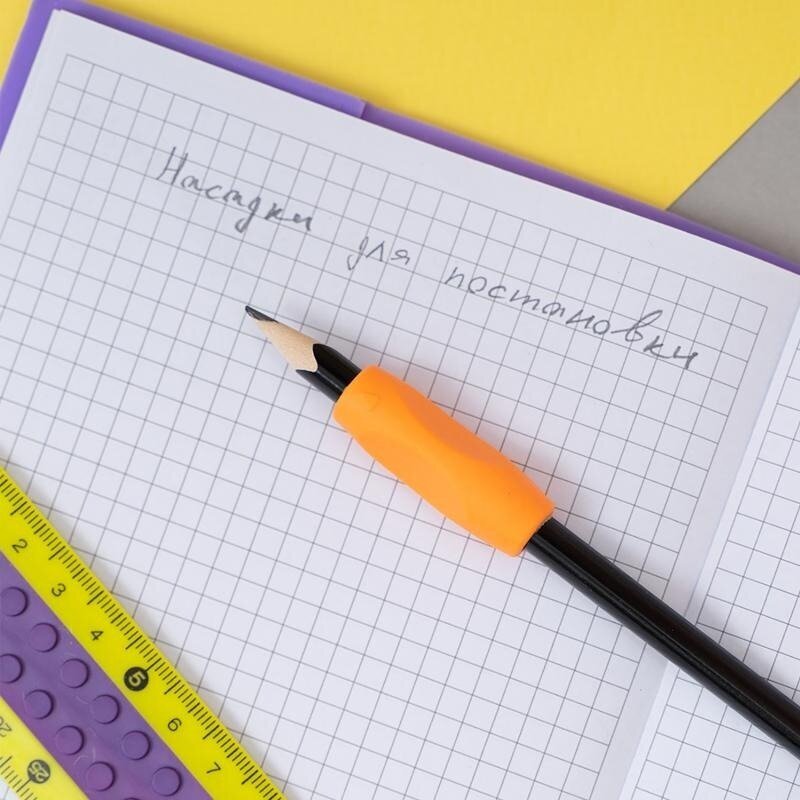 Насадки для постановки
2 3 4 5 6 7
25